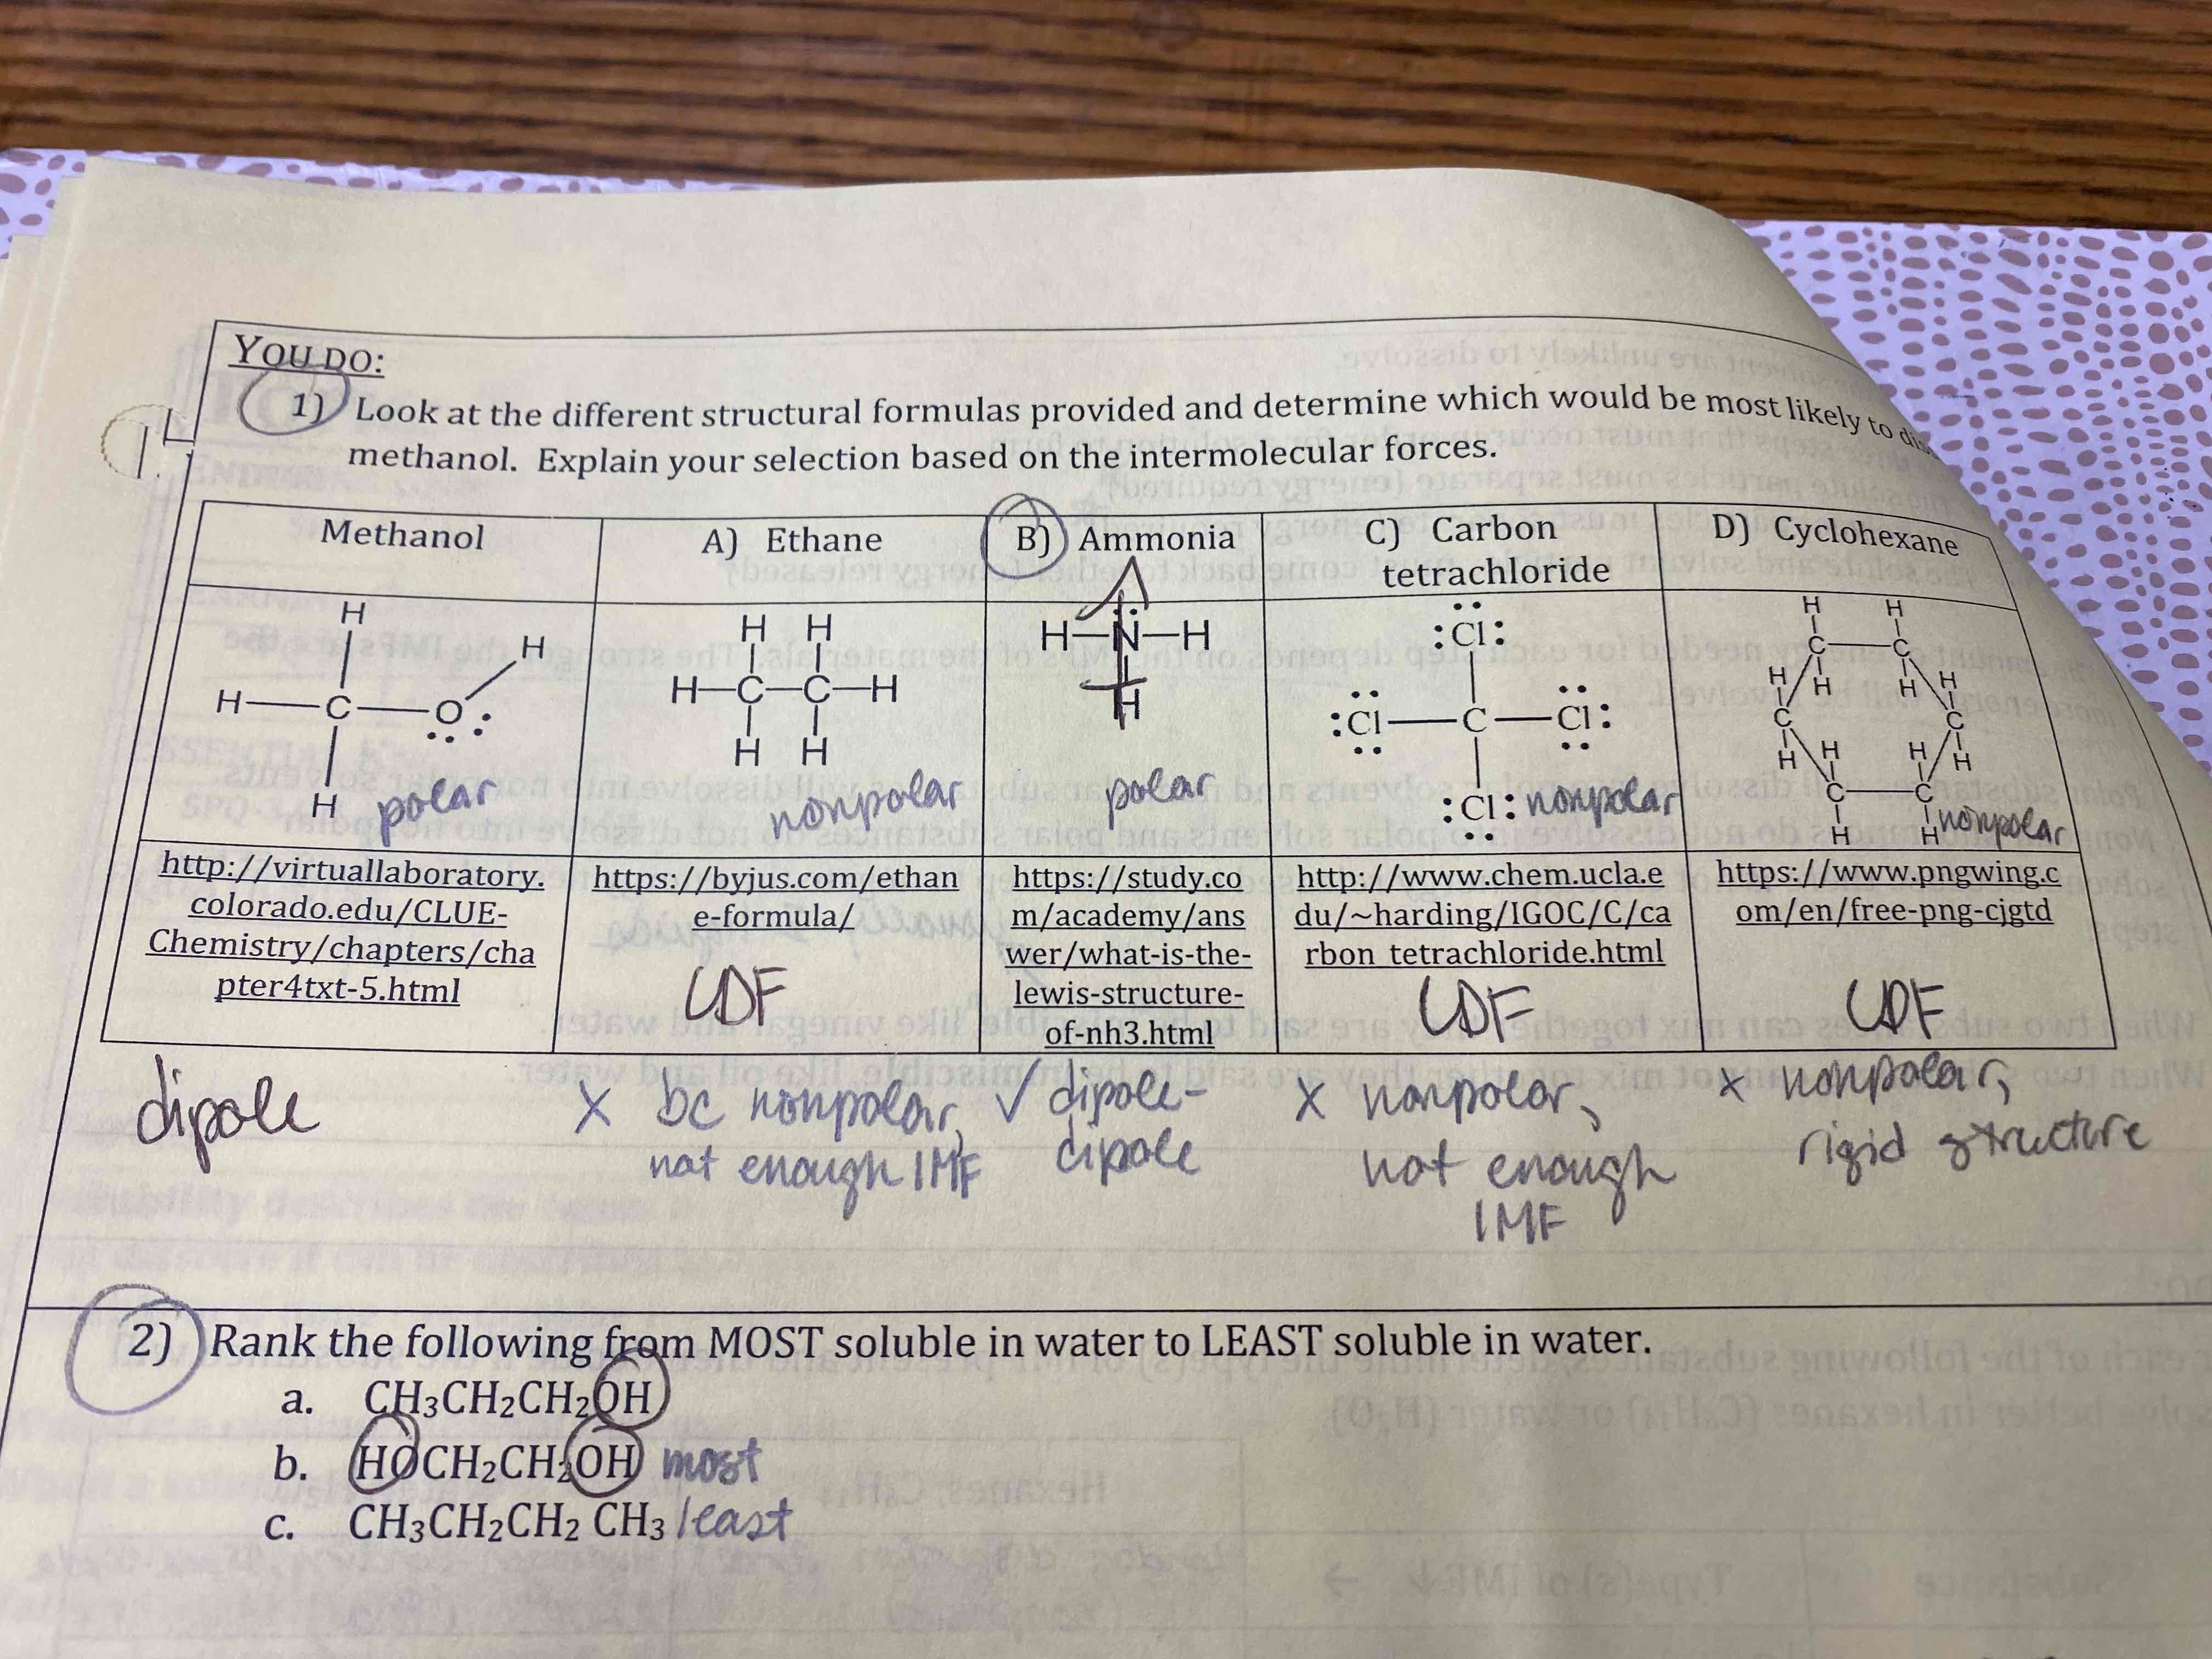 YOU DO:
1) Look at the different structural formulas provided and determine which would be most likely to
methanol. Explain your selection based on the intermolecular forces.
Methanol
A) Ethane
B) Ammonia
C) Carbon
tetrachloride
D) Cyclohexane
H
H
H—C—O:
H
polar
H H
H—C—C—H
H H
nonpolar
H—N—H
H
polar
:Cl:
:Cl—C—Cl:
:Cl: nonpolar
H H
C—C
H H H H
C C
H H H H
C—C
H H
nonpolar
http://virtuallaboratory.
colorado.edu/CLUE-
Chemistry/chapters/cha
pter4txt-5.html
https://byjus.com/ethan
e-formula/
LDF
https://study.co
m/academy/ans
wer/what-is-the-
lewis-structure-
of-nh3.html
http://www.chem.ucla.e
du/~harding/IGOC/C/ca
rbon_tetrachloride.html
LDF
https://www.pngwing.c
om/en/free-png-cjgtd
LDF
dipole
x bc nonpolar,
not enough IMF
✓ dipole-
dipole
x nonpolar,
not enough
IMF
x nonpolar,
rigid structure
2) Rank the following from MOST soluble in water to LEAST soluble in water.
a. CH₃CH₂CH₂OH
b. HOCH₂CH₂OH most
c. CH₃CH₂CH₂ CH₃ least